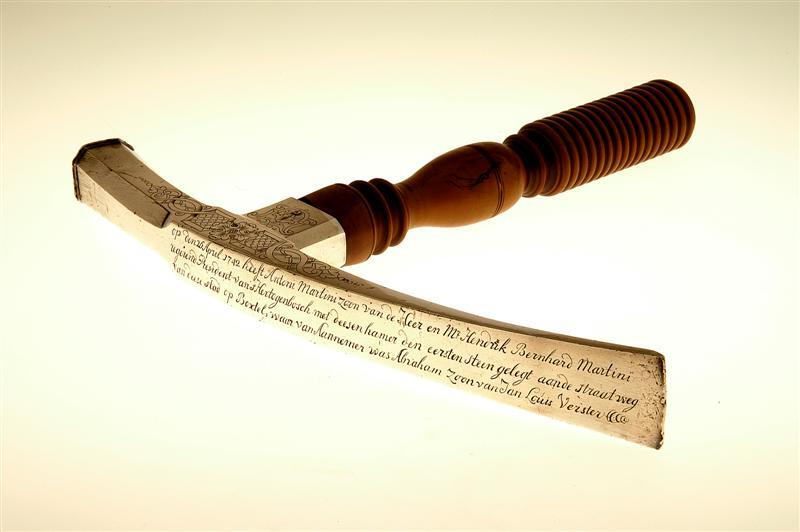 op den 26 April 1742 heeft Antoni Martini zoon van de Heer en Mr Hendrik Bernhard Martini
regirend President van s'Hertogenbosch met deesen hamer den eersten steen gelegt aande straatweg
van deese stad op Boxtel, waar van Aannemer was Abraham Zoon van Jan Louis Verster